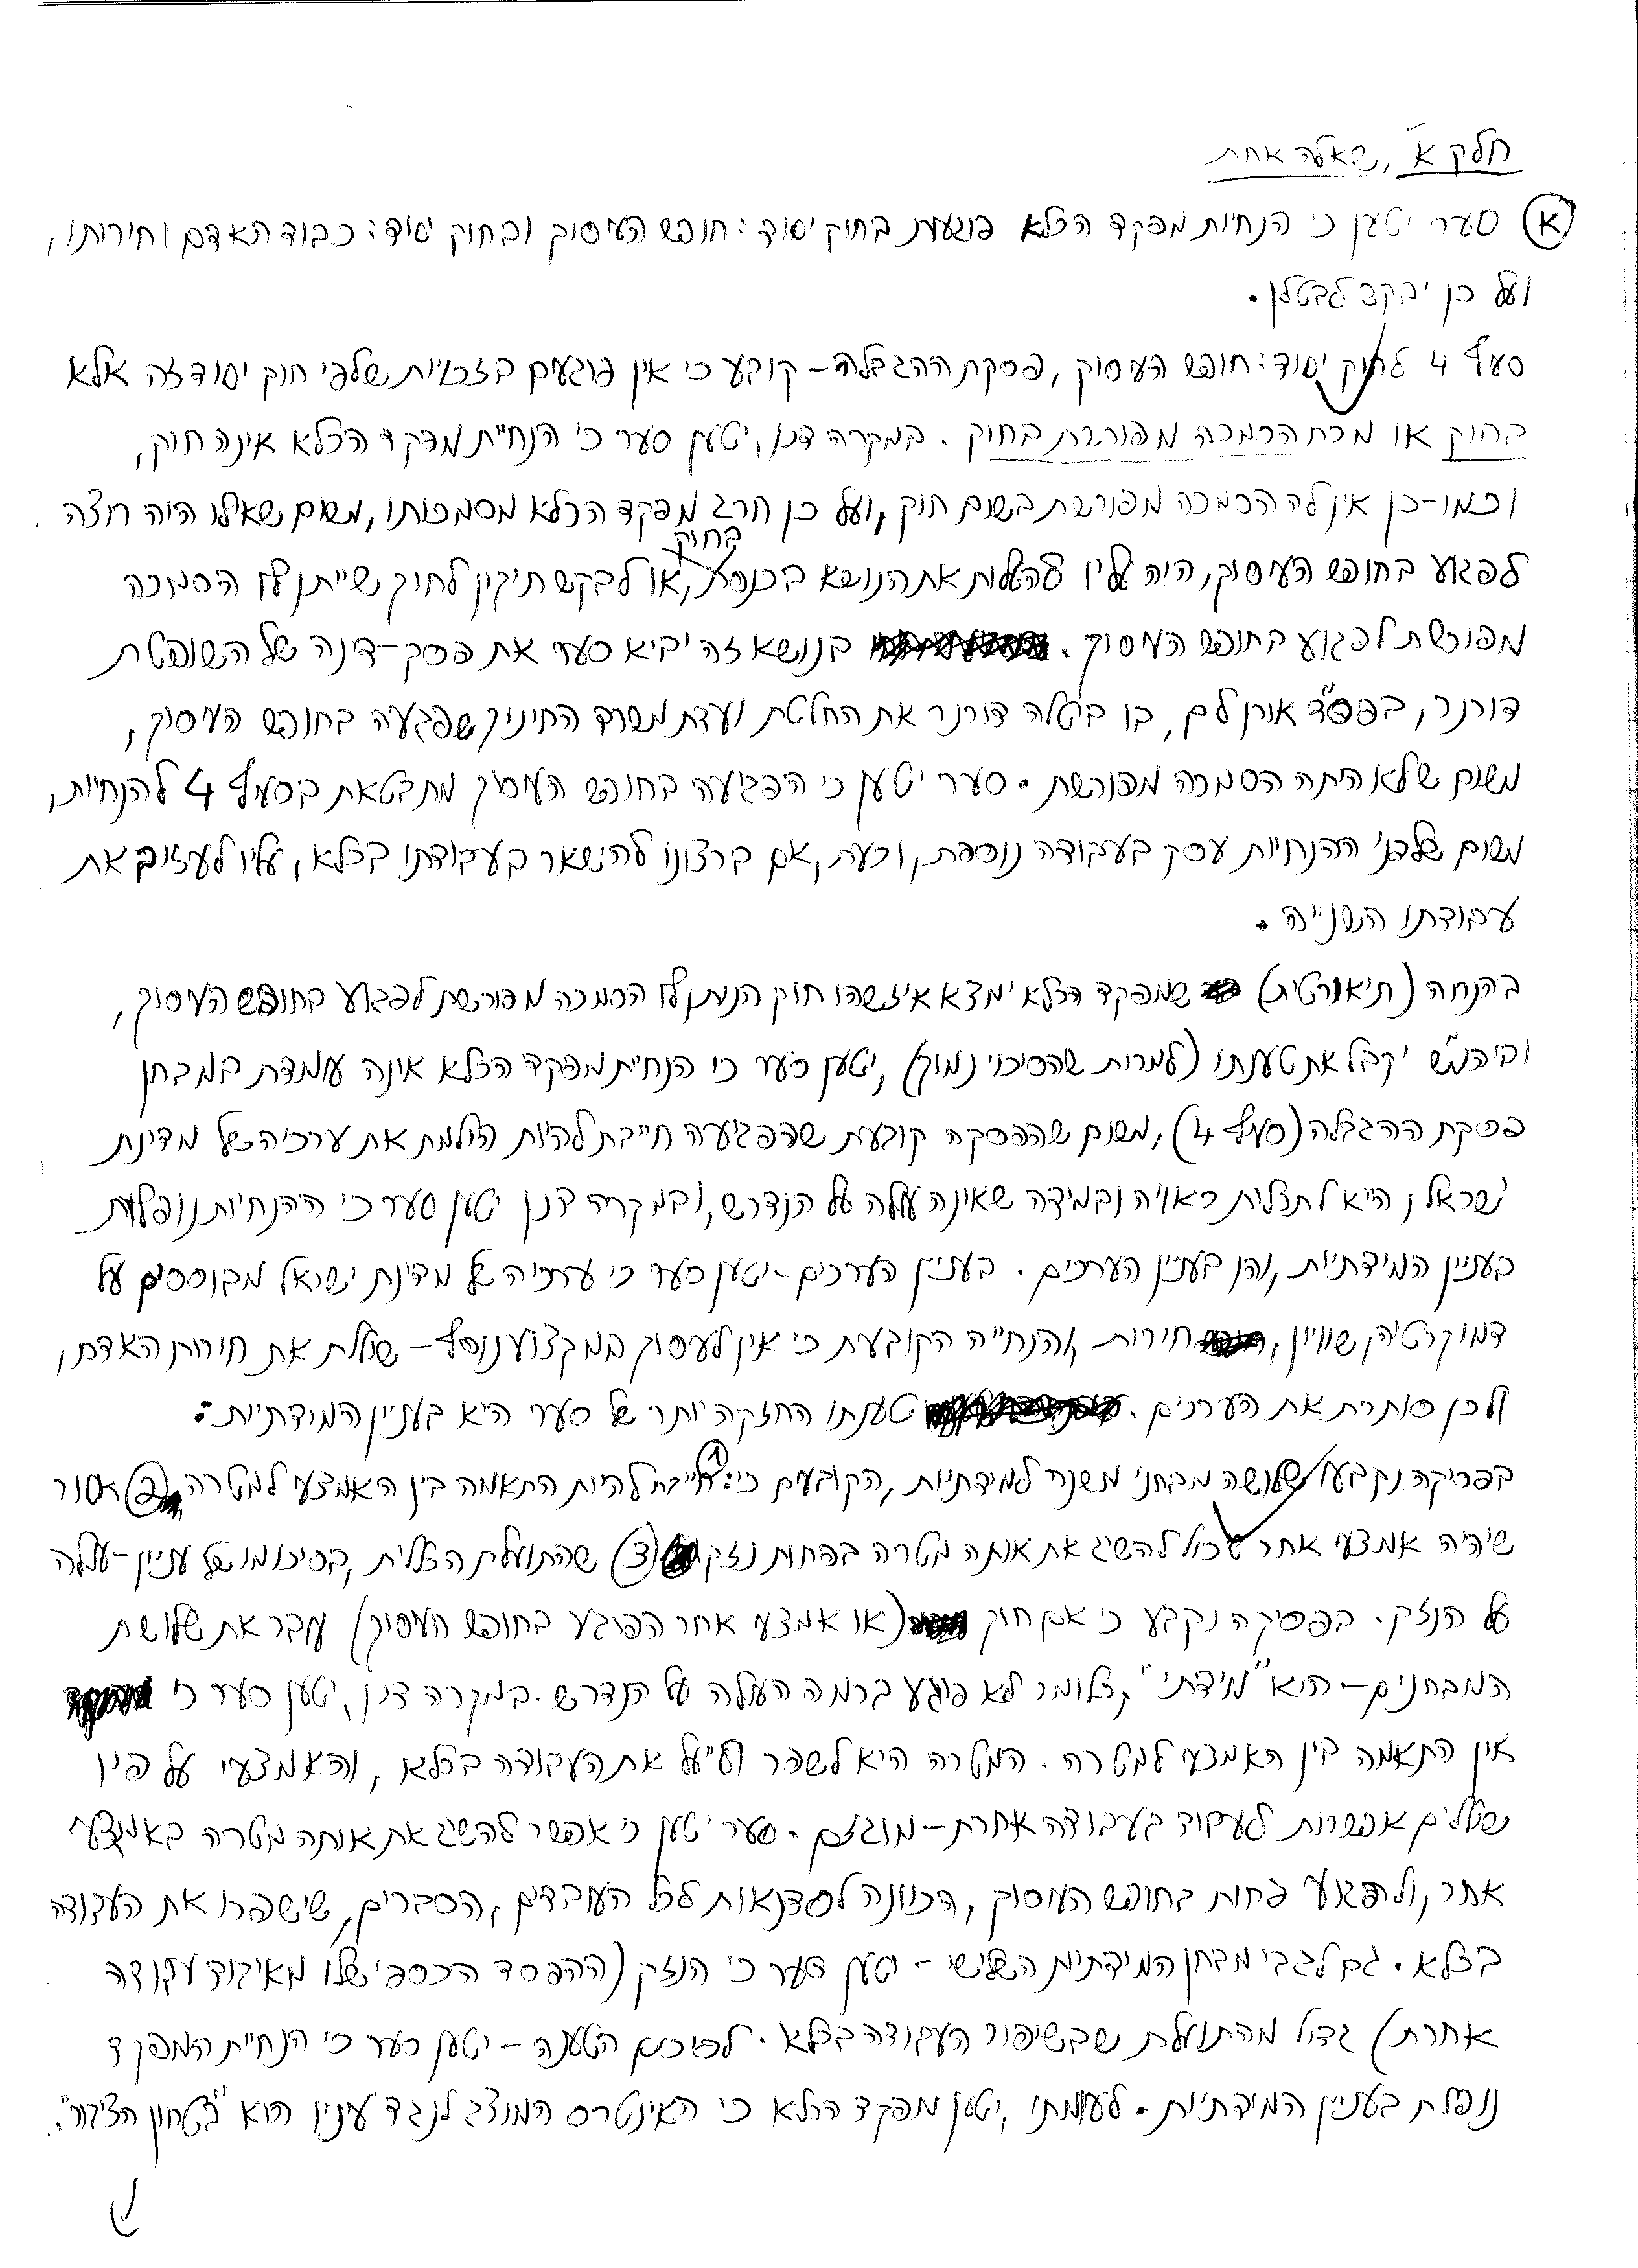 חלק א', שאלה אחת
א סער יטען כי הנחיות מפקד הכלא פוגעות בחוק יסוד: חופש העיסוק ובחוק יסוד: כבוד האדם וחירותו,
ועל כן יבקש לבטלן.
סעיף 4 לחוק יסוד: חופש העיסוק, פסקת ההגבלה - קובע כי אין פוגעים בזכויות שלפי חוק יסוד זה אלא
בחוק או מכח הסמכה מפורשת בחוק. במקרה דנן, יטען סער כי הנחיית מפקד הכלא אינה חוק,
וכמו-כן אין לה הסמכה מפורשת בשום חוק, ועל כן חרג מפקד הכלא מסמכותו, משום שאילו היה רוצה
לפגוע בחופש העיסוק, היה עליו להעלות את הנושא בכנסת בחוק, או לבקש תיקון לחוק שייתן לו הסמכה
מפורשת לפגוע בחופש העיסוק. בנושא זה יביא סער את פסק-דינה של השופטת
דורנר, בפס"ד אורן לם, בו ביטלה דורנר את החלטת ועדת משרד החינוך שפגעה בחופש העיסוק,
משום שלא היתה הסמכה מפורשת. סער יטען כי הפגיעה בחופש העיסוק מתבטאת בסעיף 4 להנחיות,
משום שלפני ההנחיות עסק בעבודה נוספת, וכעת, אם ברצונו להישאר בעבודתו בכלא, עליו לעזוב את
עבודתו השנייה.
בהנחה (תיאורטית) שמפקד הכלא ימצא איזשהו חוק הנותן לו הסמכה מפורשת לפגוע בחופש העיסוק,
וביהמ"ש יקבל את טענתו (למרות שהסיכוי נמוך), יטען סער כי הנחית מפקד הכלא אינה עומדת במבחן
פסקת ההגבלה (סעיף 4), משום שהפסקה קובעת שהפגיעה חייבת להיות הולמת את ערכיה של מדינת
ישראל והיא לתכלית ראויה ובמידה שאינה עולה על הנדרש, ובמקרה דנן יטען סער כי ההנחיות נופלות
בעניין המידתיות, והן בעניין הערכים. בעניין הערכים - יטען סער כי ערכיה של מדינת ישראל מבוססים על
דמוקרטיה, שוויון, חירות, והנחייה הקובעת כי אין לעסוק במקצוע נוסף - שוללת את חירות האדם,
ולכן סותרת את הערכים. טענתו החזקה יותר של סער היא בעניין המידתיות:
בפסיקה נקבעו שלושה מבחני משנה למידתיות, הקובעים כי: 1 חייבת להיות התאמה בין האמצעי למטרה 2 אסור
שיהיה אמצעי אחר שיכול להשיג את אותה מטרה בפחות נזק 3 שהתועלת הכללית, בסיכומו של עניין - עולה
על הנזק. בפסיקה נקבע כי אם חוק (או אמצעי אחר הפוגע בחופש העיסוק) עובר את שלושת
המבחנים - הוא "מידתי", כלומר לא פוגע ברמה העולה על הנדרש. במקרה דנן, יטען סער כי
אין התאמה בין האמצעי למטרה. המטרה היא לשפר ולייעל את העבודה בכלא, והאמצעי על פיו
שוללים אפשרות לעבוד בעבודה אחרת - מוגזם. סער יטען כי אפשר להשיג את אותה מטרה באמצעי
אחר, ולפגוע פחות בחופש העיסוק, הכוונה לסדנאות לכל העובדים, הסברים, שישפרו את העבודה
בכלא. גם לגבי מבחן המידתיות השלישי - יטען סער כי הנזק (ההפסד הכספי שלו מאיבוד עבודה
אחרת) גדול מהתועלת שבשיפור העבודה בכלא. לסיכום הטענה - יטען סער כי הנחיית המפקד
נופלת בעניין המידתיות. לעומתו, יטען מפקד הכלא כי האינטרס המוצג לנגד עיניו הוא "בטחון הציבור".